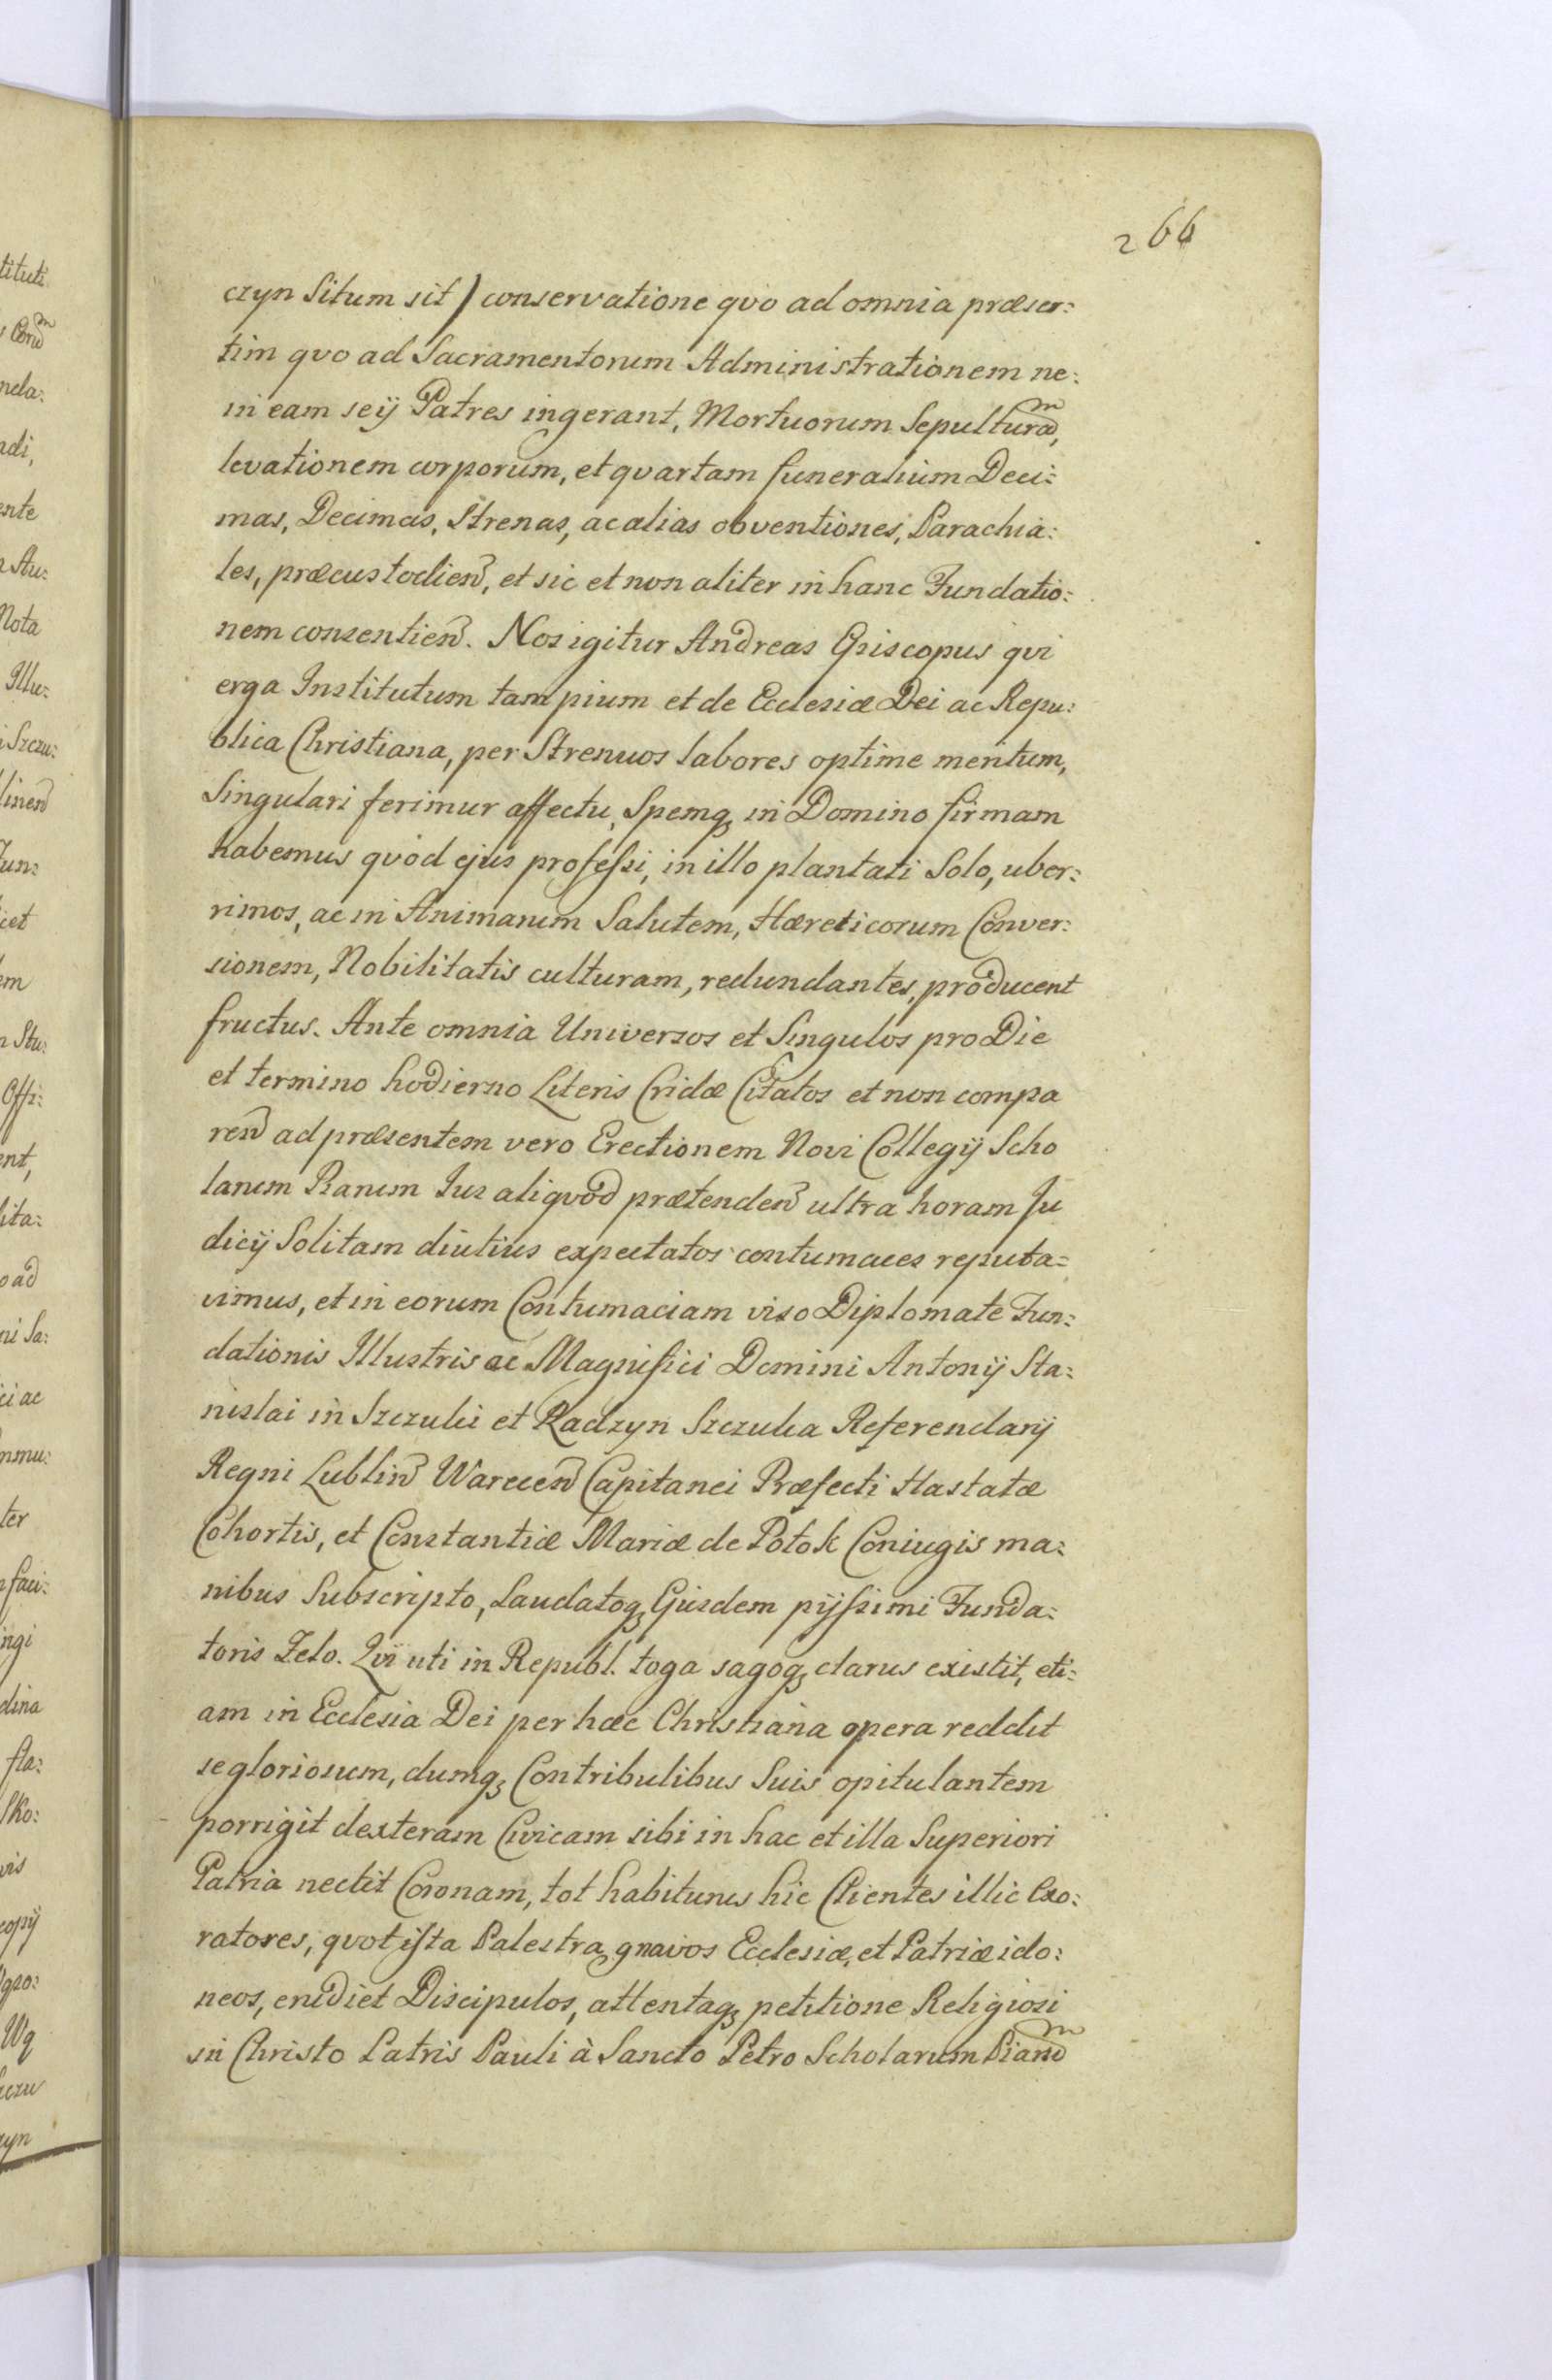 266
czyn Situm sit) conservatione qvo ad omnia præser:
tim qvo ad Sacramentorum Administrationem ne:
in eam seij Patres ingerant, Mortuorum Sepulturam,
levationem corporum, et qvartam funeralium Deci:
mas, Decimas, Strenas, ac alias obventiones, Parachia:
les, præcustodien, et sic et non aliter in hanc Fundatio:
nem consentien. Nos igitur Andreas Episcopus qvi
erga Institutum tam pium et de Ecclesiæ Dei ac Repu:
blica Christiana, per Strenuos labores optime meritum,
Singulari ferimur affectu, Spemq in Domino firmam
habemus qvod ejus professi, in illo plantati Solo, uber:
rimos, ac in Animarum Salutem, Hæreticorum Conver:
sionem, Nobilitatis culturam, redundantes, producent
fructus. Ante omnia Universos et Singulos pro Die
et termino hodierno Literis Cridæ Citatos et non compa
ren ad præsentem vero Erectionem Novi Collegij Scho
larum Piarum Ius aliqvod prætenden ultra horam Ju
dicij Solitam diutius expectatos contumaces reputa=
vimus, et in eorum Contumaciam viso Diplomate Fun:
dationis Illustris ac Magnifici Domini Antonij Sta:
nislai in Szczuki et Radzyn Szczuka Referendarij
Regni Lublin Warecen Capitanei Præfecti Hastatæ
Cohortis, et Constantiæ Mariæ de Potok Coniugis ma:
nibus Subscripto, Laudatoq Ejusdem pijssimi Funda:
toris Zelo. Qvi uti in Republ. toga sagoq clarus existit, eti:
am in Ecclesia Dei per hæc Christiana opera reddit
se gloriosum, dumq Contribulibus Suis opitulantem
porrigit dexteram Civicam sibi in hac et illa Superiori
Patria nectit Coronam, tot habiturus hic Clientes illic Exo:
ratores, qvot ista Palestra gnavos Ecclesiæ, et Patriæ ido:
neos, erudiet Discipulos, attentaq petitione Religiosi
in Christo Patris Pauli à Sancto Petro Scholarum Piarum